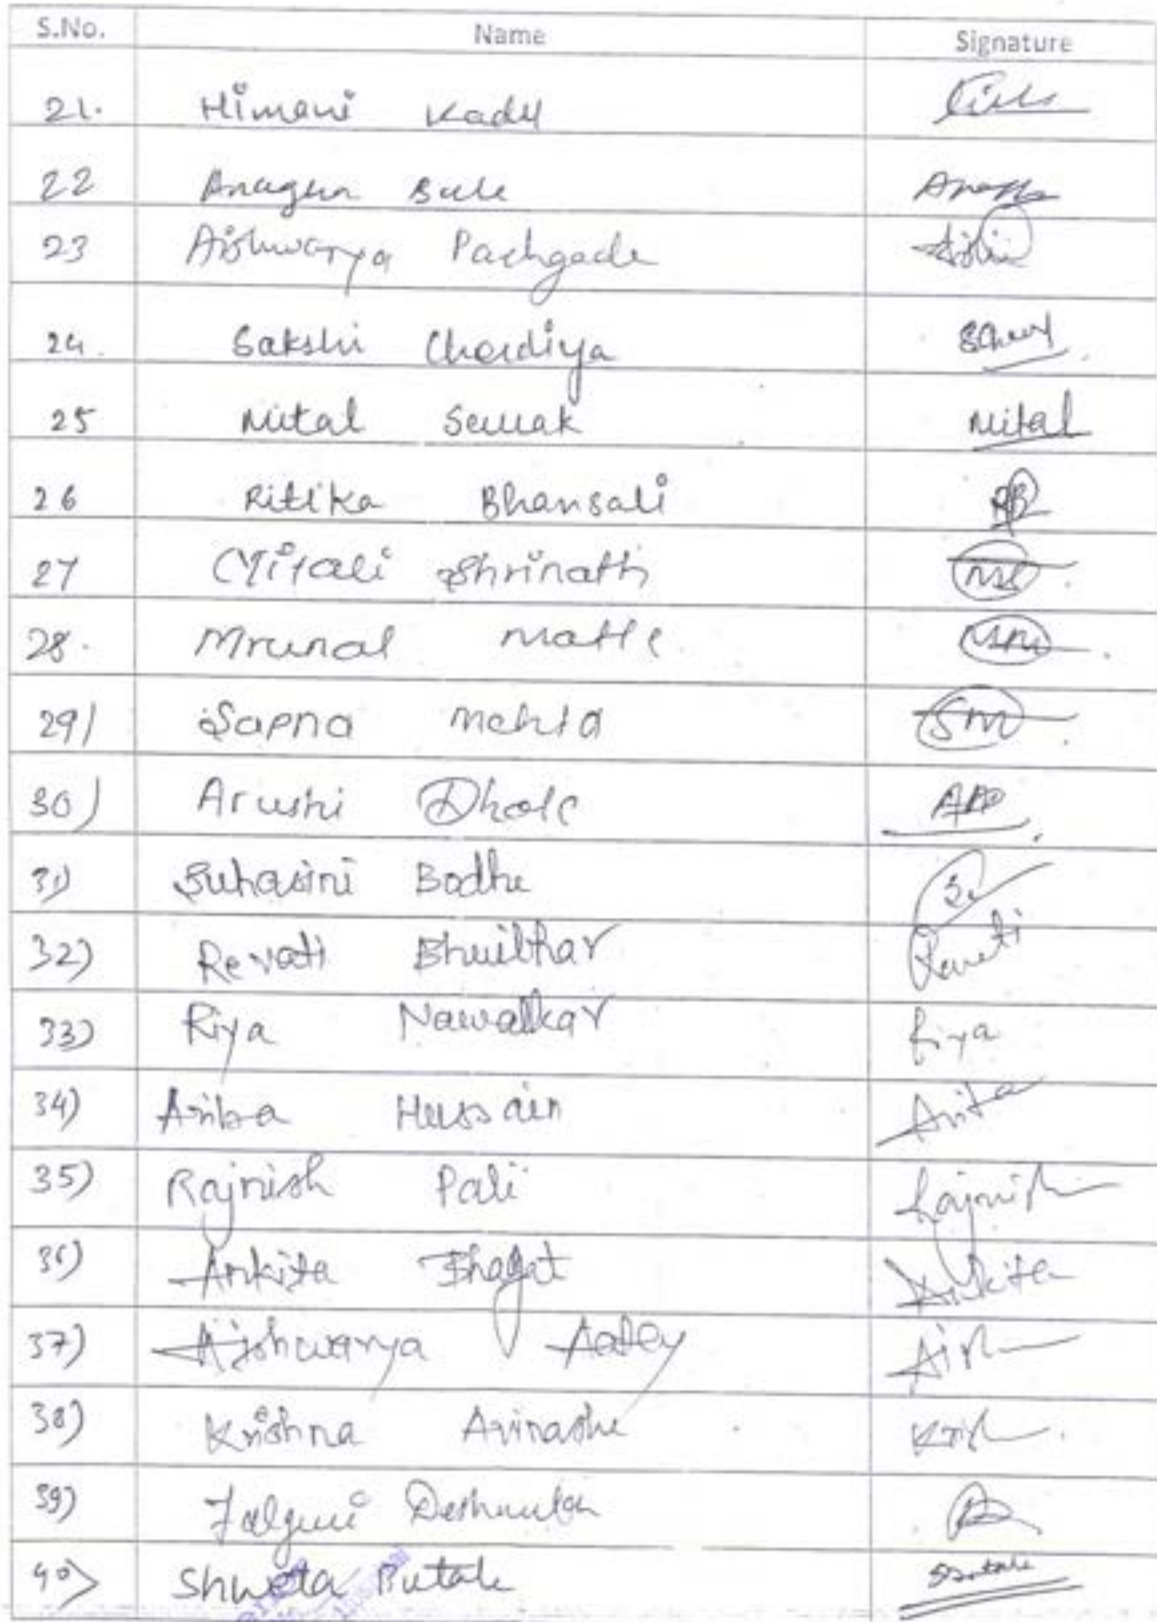 S.No. Name Signature
21. Himani Kadu
22 Anagha Bule
23 Aishwarya Pachgade
24. Sakshi Chordiya
25 Mital Sewak Mital
26 Ritika Bhansali RB
27 Mitali Shrinath
28. Mrunal Matte MM
29) Sapna Mehta SM
30) Arushi Dhole
31) Suhasini Bodhe
32) Revati Bhuibhar Revati
33) Riya Nawalkar Riya
34) Ariba Hussain Ariba
35) Rajnish Pali Rajnish
36) Ankita Bhagat Ankita
37) Aishwarya Aish
38) Krishna Avinashe Krish
39) Falguni
40) Shweta Butale SButale